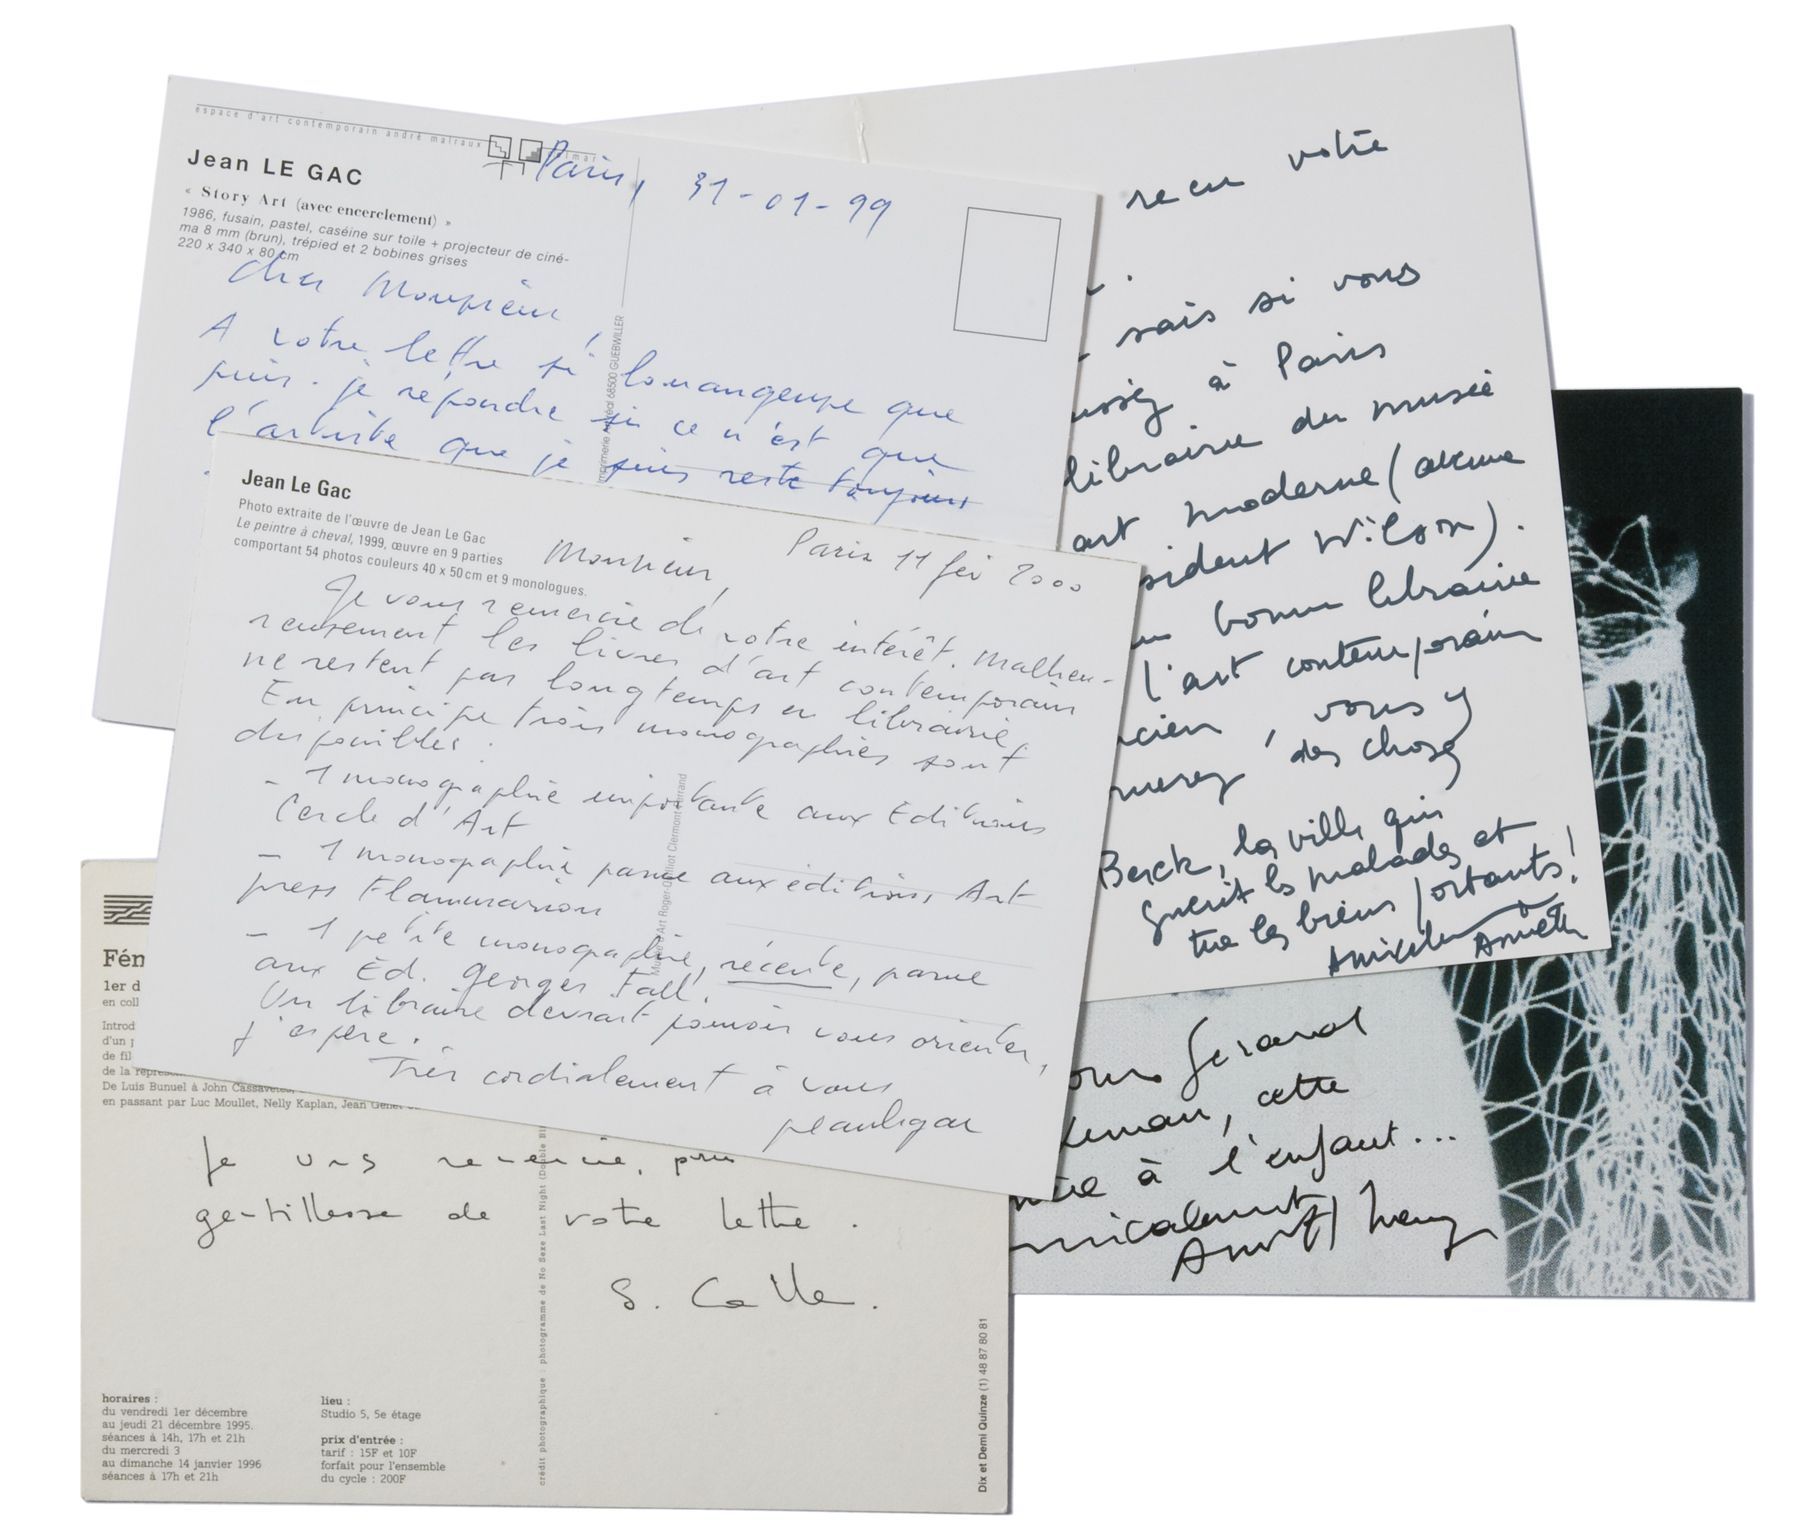 espace d'art contemporain andré malraux
Jean LE GAC
« Story Art (avec encerclement) »
1986, fusain, pastel, caséine sur toile + projecteur de ciné-
ma 8 mm (brun), trépied et 2 bobines grises
220 x 340 x 80 cm
Paris, 31-01-99
Cher Monsieur,
A votre lettre si louangeuse que
puis-je répondre si ce n'est que
l'artiste que je suis reste toujours
68500 GUEBWILLER
Jean Le Gac
Photo extraite de l'œuvre de Jean Le Gac
Le peintre à cheval, 1999, œuvre en 9 parties
comportant 54 photos couleurs 40 x 50 cm et 9 monologues.
Paris 11 fév 2000
Monsieur,
Je vous remercie de votre intérêt. Malheu-
reusement les livres d'art contemporain
ne restent pas longtemps en librairie.
En principe trois monographies sont
disponibles :
- 1 monographie importante aux Editions
Cercle d'Art
- 1 monographie parue aux éditions Art
press Flammarion
- 1 petite monographie, récente, parue
aux Ed. Georges Fall.
Un libraire devrait pouvoir vous orienter,
j'espère.
Très cordialement à vous
jeanlegac
Musée d'Art Roger-Quilliot Clermont-Ferrand
recu votre
sais si vous
à Paris
librairie du musée
art moderne (avenue
sident Wilson).
bonne librairie
l'art contemporain
, vous y
des choses
Berck, la ville qui
guérit les malades et
tue les biens portants!
Annette
Gérard
, cette
à l'enfant...
amicalement
Annette Messager
Fém
1er d
en coll
Introd
d'un p
de fil
de la représ
De Luis Bunuel à John Cassavetes,
en passant par Luc Moullet, Nelly Kaplan, Jean Genet
Je vous remercie, pour
gentillesse de votre lettre.
S. Calle.
crédit photographique : photogramme de No Sexe Last Night (Double Bl
horaires :
du vendredi 1er décembre
au jeudi 21 décembre 1995.
séances à 14h, 17h et 21h
du mercredi 3
au dimanche 14 janvier 1996
séances à 17h et 21h
lieu :
Studio 5, 5e étage
prix d'entrée :
tarif : 15F et 10F
forfait pour l'ensemble
du cycle : 200F
Dix et Demi Quinze (1) 48 87 80 81